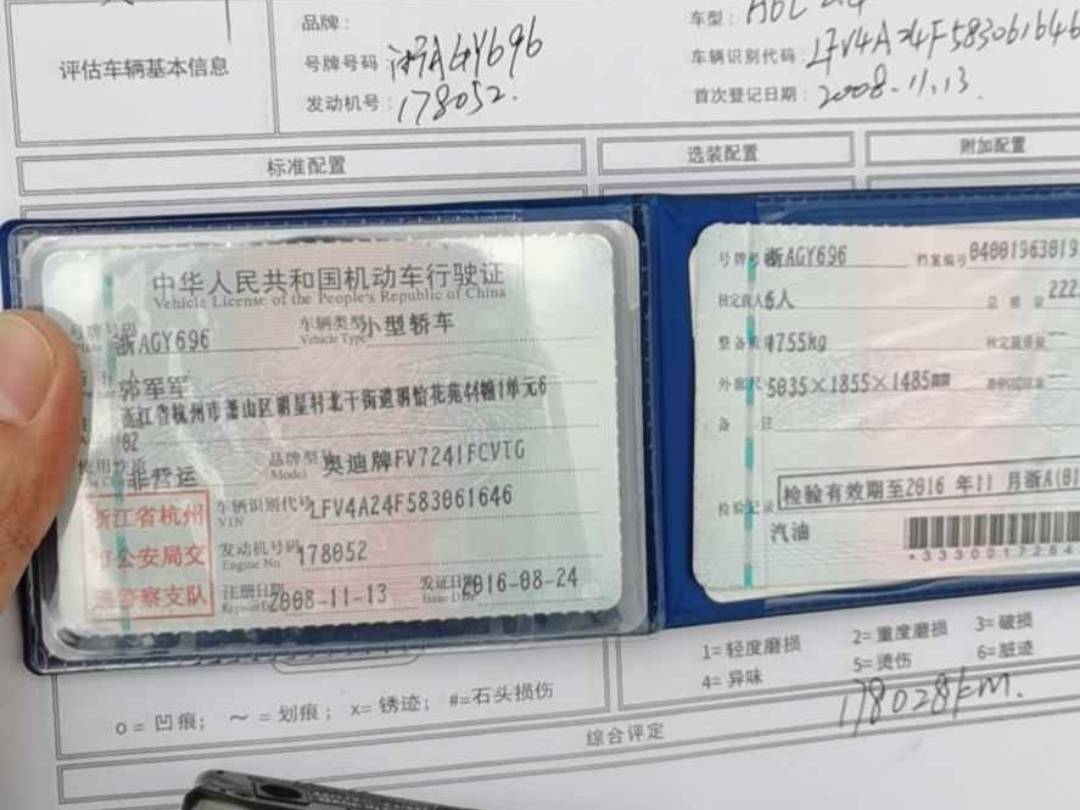 评估车辆基本信息
品牌:
车型:
号牌号码 浙AGY696
车辆识别代码: LFV4A24F583061646
发动机号: 178052.
首次登记日期: 2008-11.13.
标准配置
选装配置
附加配置
中华人民共和国机动车行驶证
Vehicle License of the People's Republic of China
浙AGY696
车辆类型 小型轿车
Vehicle Type
郭军军
浙江省杭州市萧山区明星村北干街道明怡花苑44幢1单元6
02
非营运
品牌型号 奥迪牌FV7241FCVTG
Model
车辆识别代号 LFV4A24F583061646
VIN
浙江省杭州
市公安局交
通警察支队
发动机号码 178052
Engine No.
注册日期 2008-11-13
发证日期 2016-08-24
Issue Date
号牌号码 浙AGY696
档案编号
核定载人 5人
总质量
整备质量 1755kg
外廓尺寸 5035×1855×1485mm
备 注
检验记录
检验有效期至2016 年11 月浙A(01
汽油
1=轻度磨损
2=重度磨损
3=破损
4=异味
5=烫伤
6=脏迹
o=凹痕; ～=划痕; x=锈迹; #=石头损伤
178028km.
综合评定